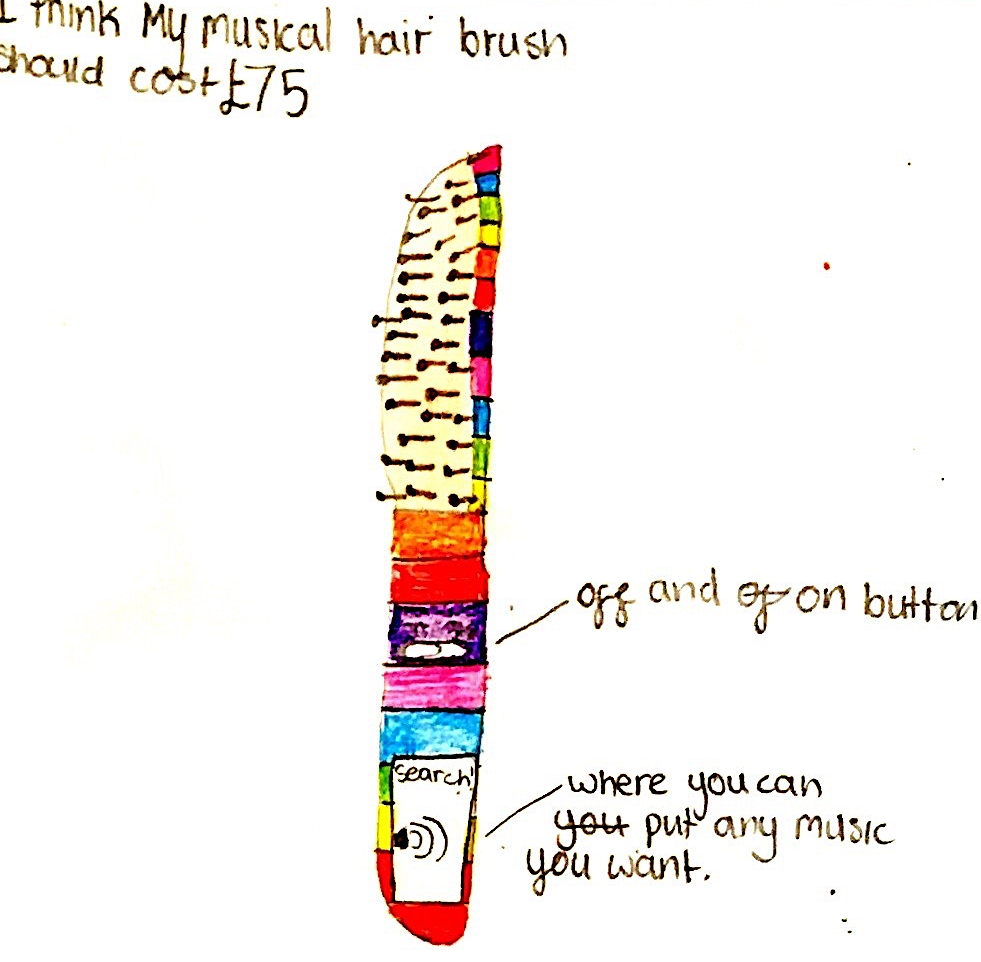 I think My musical hair brush
should cost £75
off and of on button
search!
where you can
you put any music
you want.